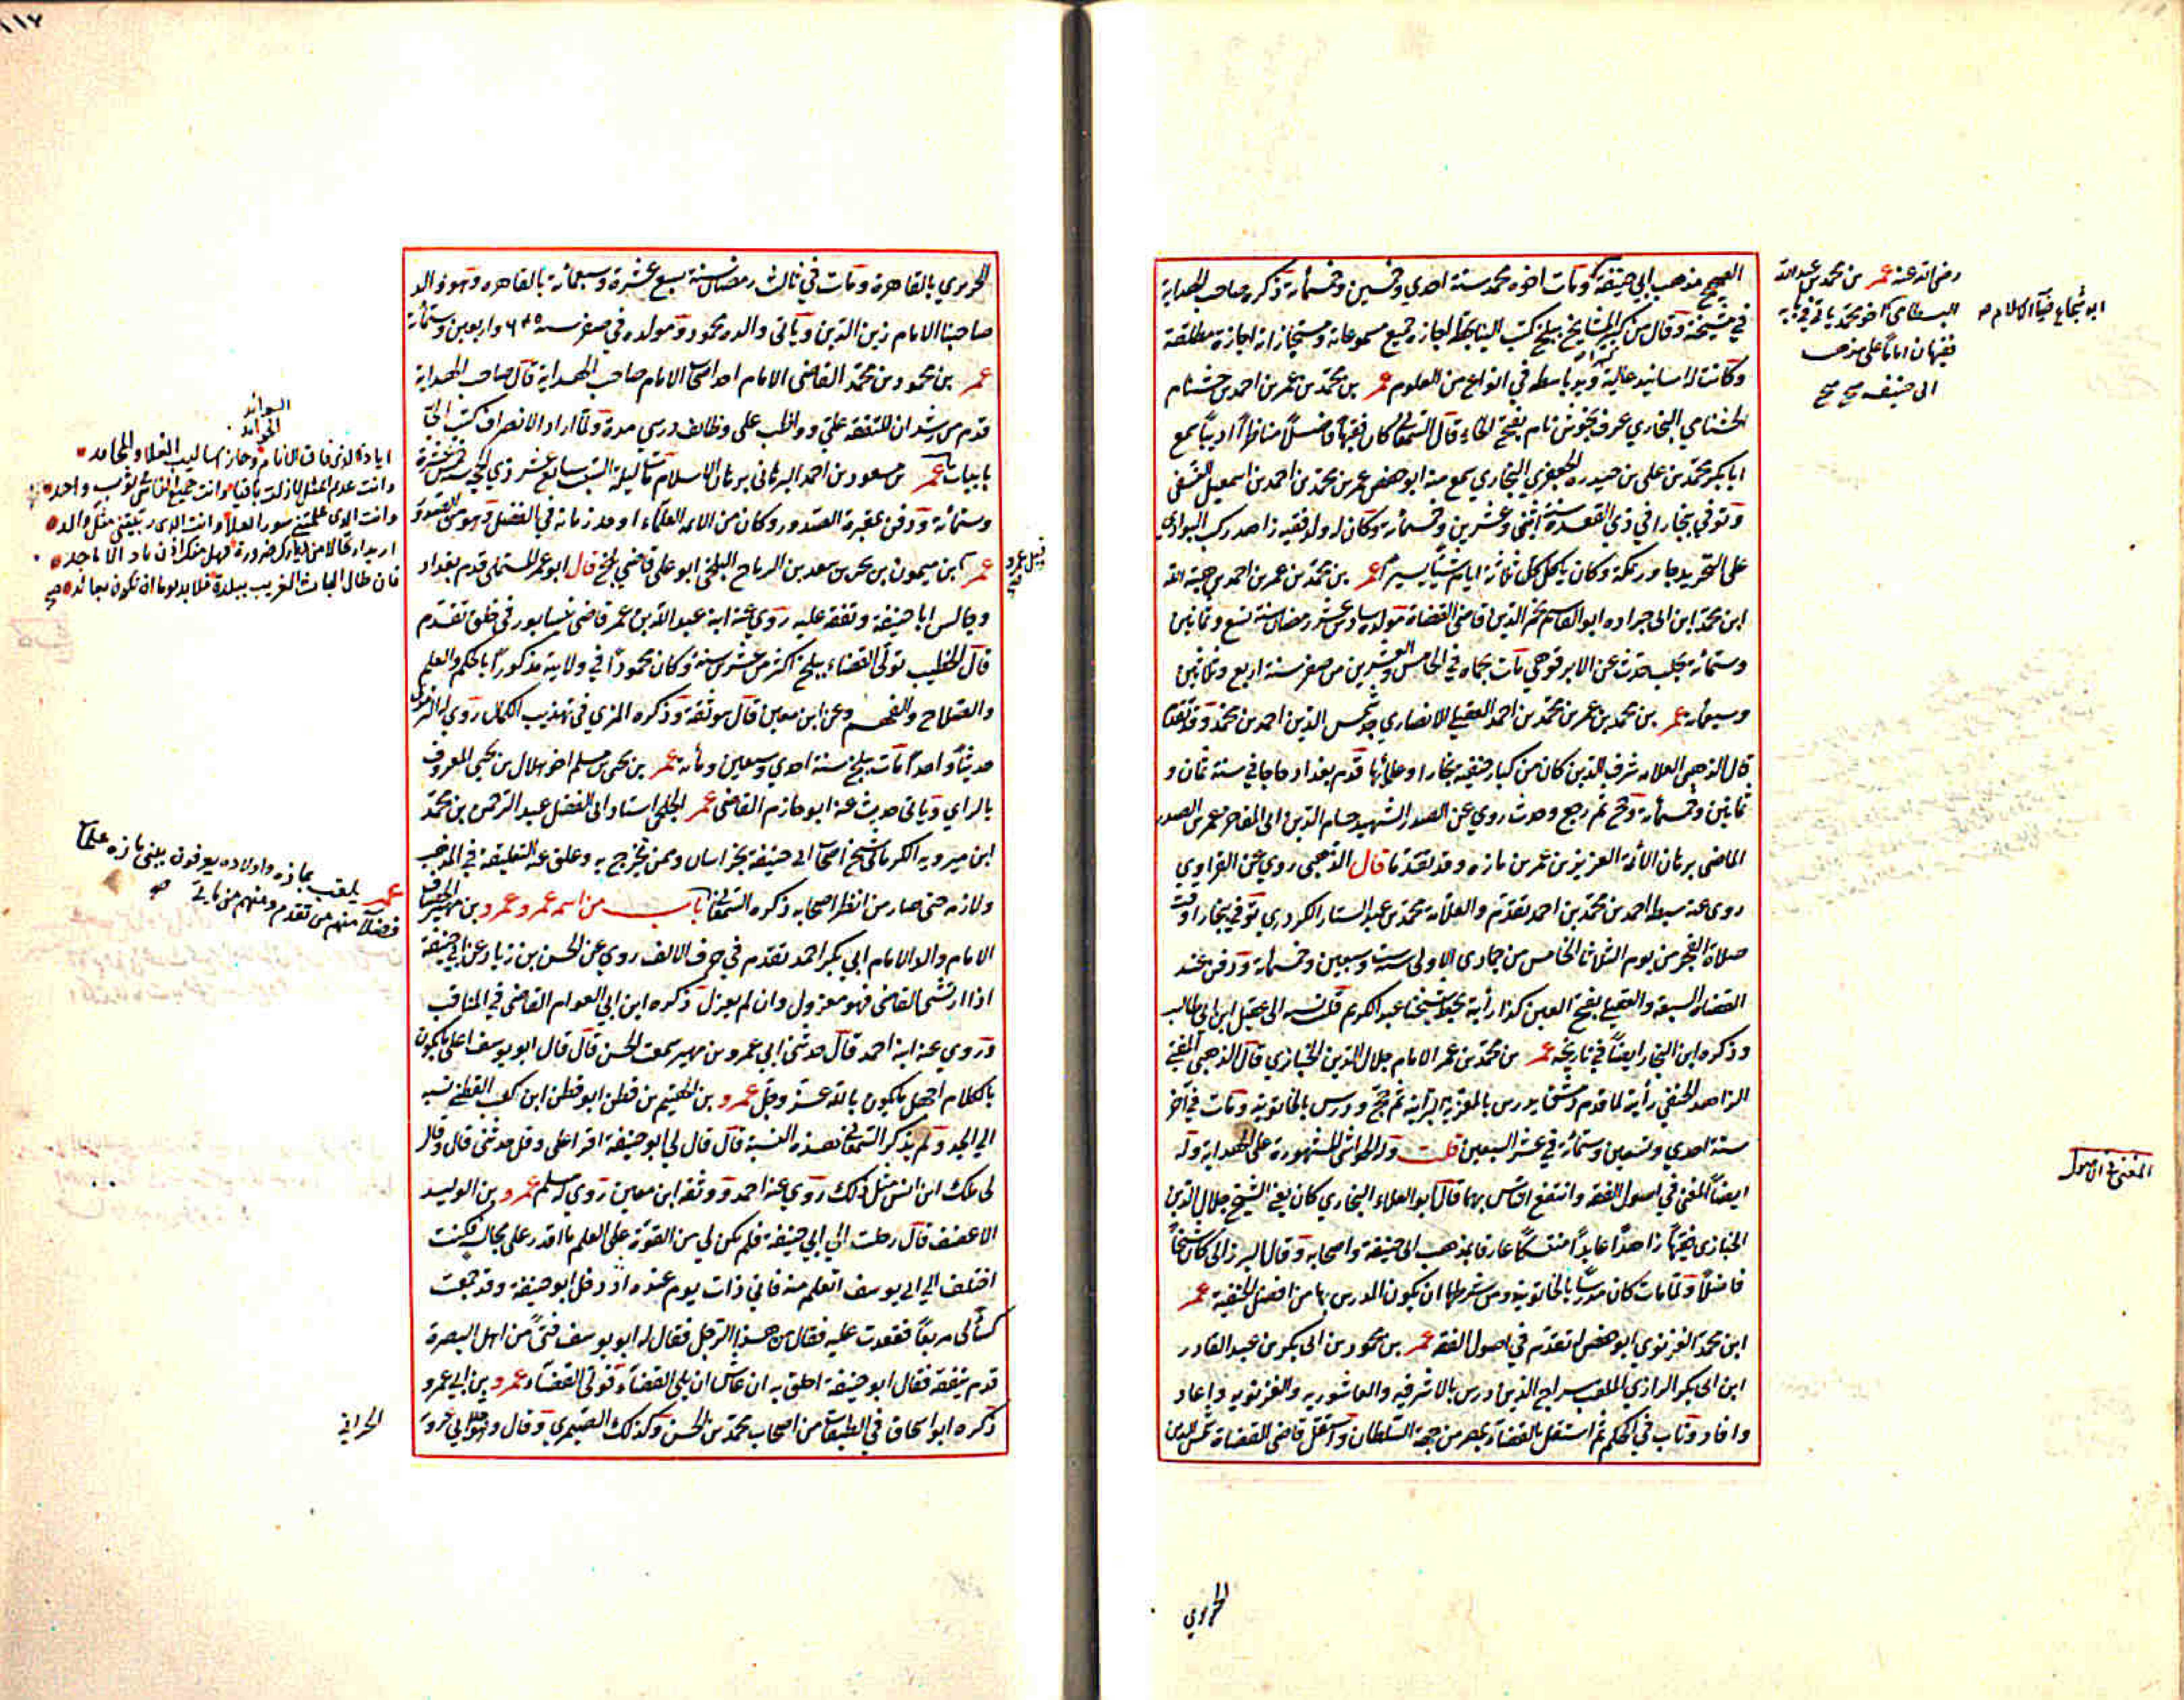 الصحيح مذهب ابي حنيفة ومات اخوه محمد سنة احدي وخمسين وخمسمائة ذكره صاحب الهداية
في مشيخته وقال من كبير المشايخ ببلخ كتب الينا بخطه اجازة جميع مسموعاته ومستجازاته اجازة مطلقة
وكانت له اسانيد عالية ويد باسطه في انواع من العلوم عمر بن محمد بن عمر بن احمد بن خشنام
الخشنامي البخاري عرف بخوش نام بفتح الخاء قال السمعاني كان فقيها فاضلا مناظرا اديبا سمع
ابا بكر محمد بن علي بن حيدره الجعفري البخاري سمع منه ابو حفص عمر بن محمد بن احمد بن اسمعيل النسفي
وتوفي ببخارا في ذي القعدة سنة اثنى وعشرين وخمسمائة وكان له ولد فقيه زاهد ركب البوادي
على التجريد جاور بمكة وكان ياكل كل ثلاثة ايام شيئا يسيرا عمر بن محمد بن عمر بن احمد بن هبة الله
ابن محمد ابن ابى جراده ابو القاسم نجم الدين قاضي القضاة مولده سادس عشر رمضان سنة تسع وثمانين
وستمائة بحلب حدث عن الابرقوهي مات بحماه في الخامس والعشرين من صفر سنة اربع وثلاثين
وسبعمائة عمر بن محمد بن عمر بن محمد بن احمد العقيلي الانصاري جد شمس الدين احمد بن محمد وقد تقدم
قال الذهبي العلامه شرف الدين كان من كبار حنفية بخارا وعلمائها قدم بغداد حاجا في سنة ثمان و
ثمانين وخمسمائة وحج ثم رجع وحدث روي عن الصدر الشهيد حسام الدين ابي المفاخر عمر بن الصدر
الماضي برهان الائمة العزيز بن عمر بن مازه وقد تقدما قال الذهبي روي عن الفراوي
روى عنه سبطه احمد بن محمد بن احمد تقدم والعلامة محمد بن عبد الستار الكردري توفي ببخارا وقت
صلاة الفجر من يوم الثلاثا الخامس من جمادى الاولى سنة ست وسبعين وخمسمائة ودفن عند
القضاة السبعة والعقيلي بفتح العين كذا رأيته بخط شيخنا عبد الكريم قلت نسبه الى عقيل ابن ابى طالب
وذكره ابن النجار ايضا في تاريخه عمر بن محمد بن عمر الامام جلال الدين الخبازي قال الذهبي المفتي
الزاهد الحنفي رأيته لما قدم دمشق يدرس بالعزية البرانية ثم حج ودرس بالخاتونية ومات في آخر
سنة احدي وتسعين وستمائة في عشر السبعين قلت وله الحواشي المشهورة على الهداية وله
ايضا المغني في اصول الفقه وانتفع الناس بهما قال ابو العلاء البخاري كان يعني الشيخ جلال الدين
الخبازي فقيها زاهدا عابدا متنسكا عارفا بمذهب ابى حنيفة واصحابه وقال البرزالي كان شيخا
فاضلا ولما مات كان مدرسا بالخاتونية ومن شرطها ان يكون المدرس بها من افضل الحنفية عمر
ابن محمد الغزنوي ابو حفص له تقدم في اصول الفقه عمر بن محمود بن ابى بكر بن عبد القادر
ابن ابى بكر الرازي الملقب سراج الدين درس بالاشرفيه والعاشوريه والغزنويه واعاد
وافاد وناب في الحكم ثم استقل بالقضاء بمصر من جهة السلطان واستقل قاضي القضاة شمس الدين
رضى الله عنه عمر بن محمد بن عبد الله
البسطامي اخو محمد ياتي في بابه
فقيهان امامان على مذهب
ابى حنيفه صح صح
ابو شجاع ضياء الاسلام صح
المغنى في الاصول
الحريري
١١٧
الحريري بالقاهرة ومات في ثالث رمضان سنة سبع عشرة وسبعمائة بالقاهره وهو والد
صاحبنا الامام زين الدين وياتى والده محمود ومولده في صفر سنة ٦٤٥ واربعين وستمائة
عمر بن محمود بن محمد القاضى الامام احد اصحاب الامام صاحب الهداية قال صاحب الهداية
قدم من رشدان للتفقه علي وواظب على وظائف درسي مدة ولما اراد الانصراف كتب الي
بابيات عمر بن مسعود بن احمد البرهاني برهان الاسلام مات ليلة السبت سابع عشر ذي الحجة سنة خمس عشرة
وستمائة ودفن بمقبرة الصدور وكان من الائمه العلماء اوحد زمانه في الفضل وهو من الصدور
عمر بن ميمون بن بحر بن سعد بن الرماح البلخي ابو على قاضي بلخ قال ابو عمر المستملي قدم بغداد
وجالس ابا حنيفة وتفقه عليه روي عنه ابنه عبد الله بن عمر قاضي نيسابور في خلق تقدم
قال الخطيب تولى القضاء ببلخ اكثر من عشرين سنة وكان محمودا في ولايته مذكورا بالحكم والعلم
والصلاح والفهم وعن ابن معين قال هو ثقة وذكره المزي في تهذيب الكمال روى له الترمذي
حديثا واحدا مات ببلخ سنة احدي وسبعين ومائة عمر بن يحيى بن مسلم اخو هلال بن يحيى المعروف
بالراي وياتى حديث عنه ابو حازم القاضي عمر الحلبي استاد ابى الفضل عبد الرحمن بن محمد
ابن اميرويه الكرماني شيخ اصحاب ابى حنيفة بخراسان وممن تخرج به وعلق عنه التعليقة في المذهب
ولازمه حتى صار من انظر اصحابه ذكره السمعاني باب من اسمه عمرو عمرو بن مهير الخصاف
الامام والد الامام ابي بكر احمد تقدم في حرف الالف روي عن الحسن بن زياد عن ابي حنيفة
اذا ارتشى القاضى فهو معزول وان لم يعزل ذكره ابن ابي العوام القاضى في المناقب
وروي عنه ابنه احمد قال حدثنى ابي عمرو بن مهير سمعت الحسن قال قال ابو يوسف اعلم ما يكون
بالكلام اجهل ما يكون بالله عز وجل عمرو بن الهيثم بن قطن ابو قطن ابن كعب القطني نسبه
الي الجد ولم يذكر السمعاني هذه النسبة قال قال لي ابو حنيفة اقرا على وقل حدثنى قال وقال
لي مالك ابن انس مثل ذلك روي عنه احمد ووثقه ابن معين روي له مسلم عمرو بن الوليد
الاغضف قال رحلت الي ابي حنيفة فلم يكن لي من القوة على العلم ما اقدر على مجالسته فكنت
اختلف الي ابي يوسف اتعلم منه فاني ذات يوم عنده اذ دخل ابو حنيفة وقد جمعت
كسائي مربعا فقعدت عليه فقال من هذا الرجل فقال له ابو يوسف فتى من اهل البصرة
قدم يتفقه فقال ابو حنيفة اخلق به ان عاش ان يلي القضاء فولي القضاء عمرو بن ابي عمرو
ذكره ابو اسحاق في الطبقات من اصحاب محمد بن الحسن وكذلك الصيمري وقال وهو جد ابي عروبة
الفوائد
المحامد
ايا ذا الذي فاق الانام وحاز اساليب العلا والمحامد
وانت عديم المثل لا زلت باقيا وانت جميع الناس في ثوب واحد
وانت الذي علمتني سور العلا وانت الذي ربيتني مثل والد
اريد ارتحالا من ذراك ضرورة فهل منك اذن ماد الاماجد
فان طال الباث الغريب ببلدة فلا بد يوما ان يكون بعائد صح
قيل عمرو
صح
عمر يلقب بمازه واولاده يعرفون ببنى مازه علماء
فضلاء منهم من تقدم ومنهم من ياتي صح
الحراني